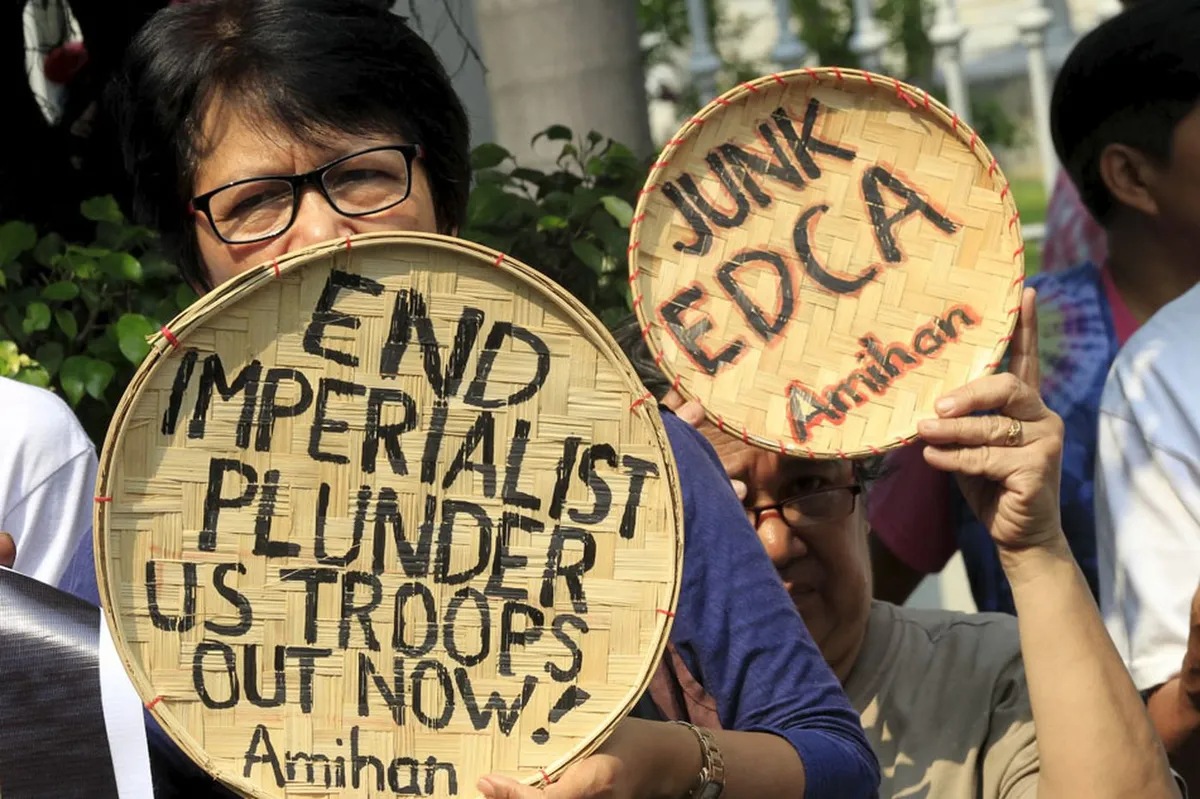 END
IMPERIALIST
PLUNDER
US TROOPS
OUT NOW!
Amihan
JUNK
EDCA
Amihan